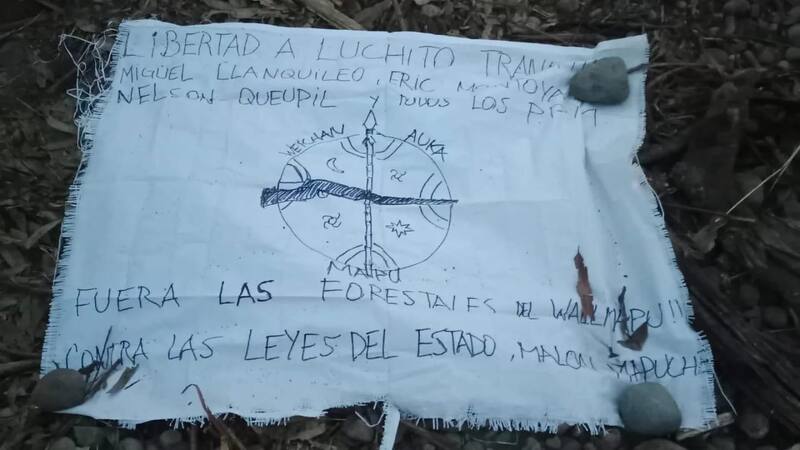 LIBERTAD A LUCHITO
MIGUEL LLANQUILEO, ERIC
NELSON QUEUPIL Y TODOS LOS
WEICHAN AUKA
MAIPU
FUERA LAS FORESTALES DEL WALLMAPU!!
CONTRA LAS LEYES DEL ESTADO, MALON MAPUCHE